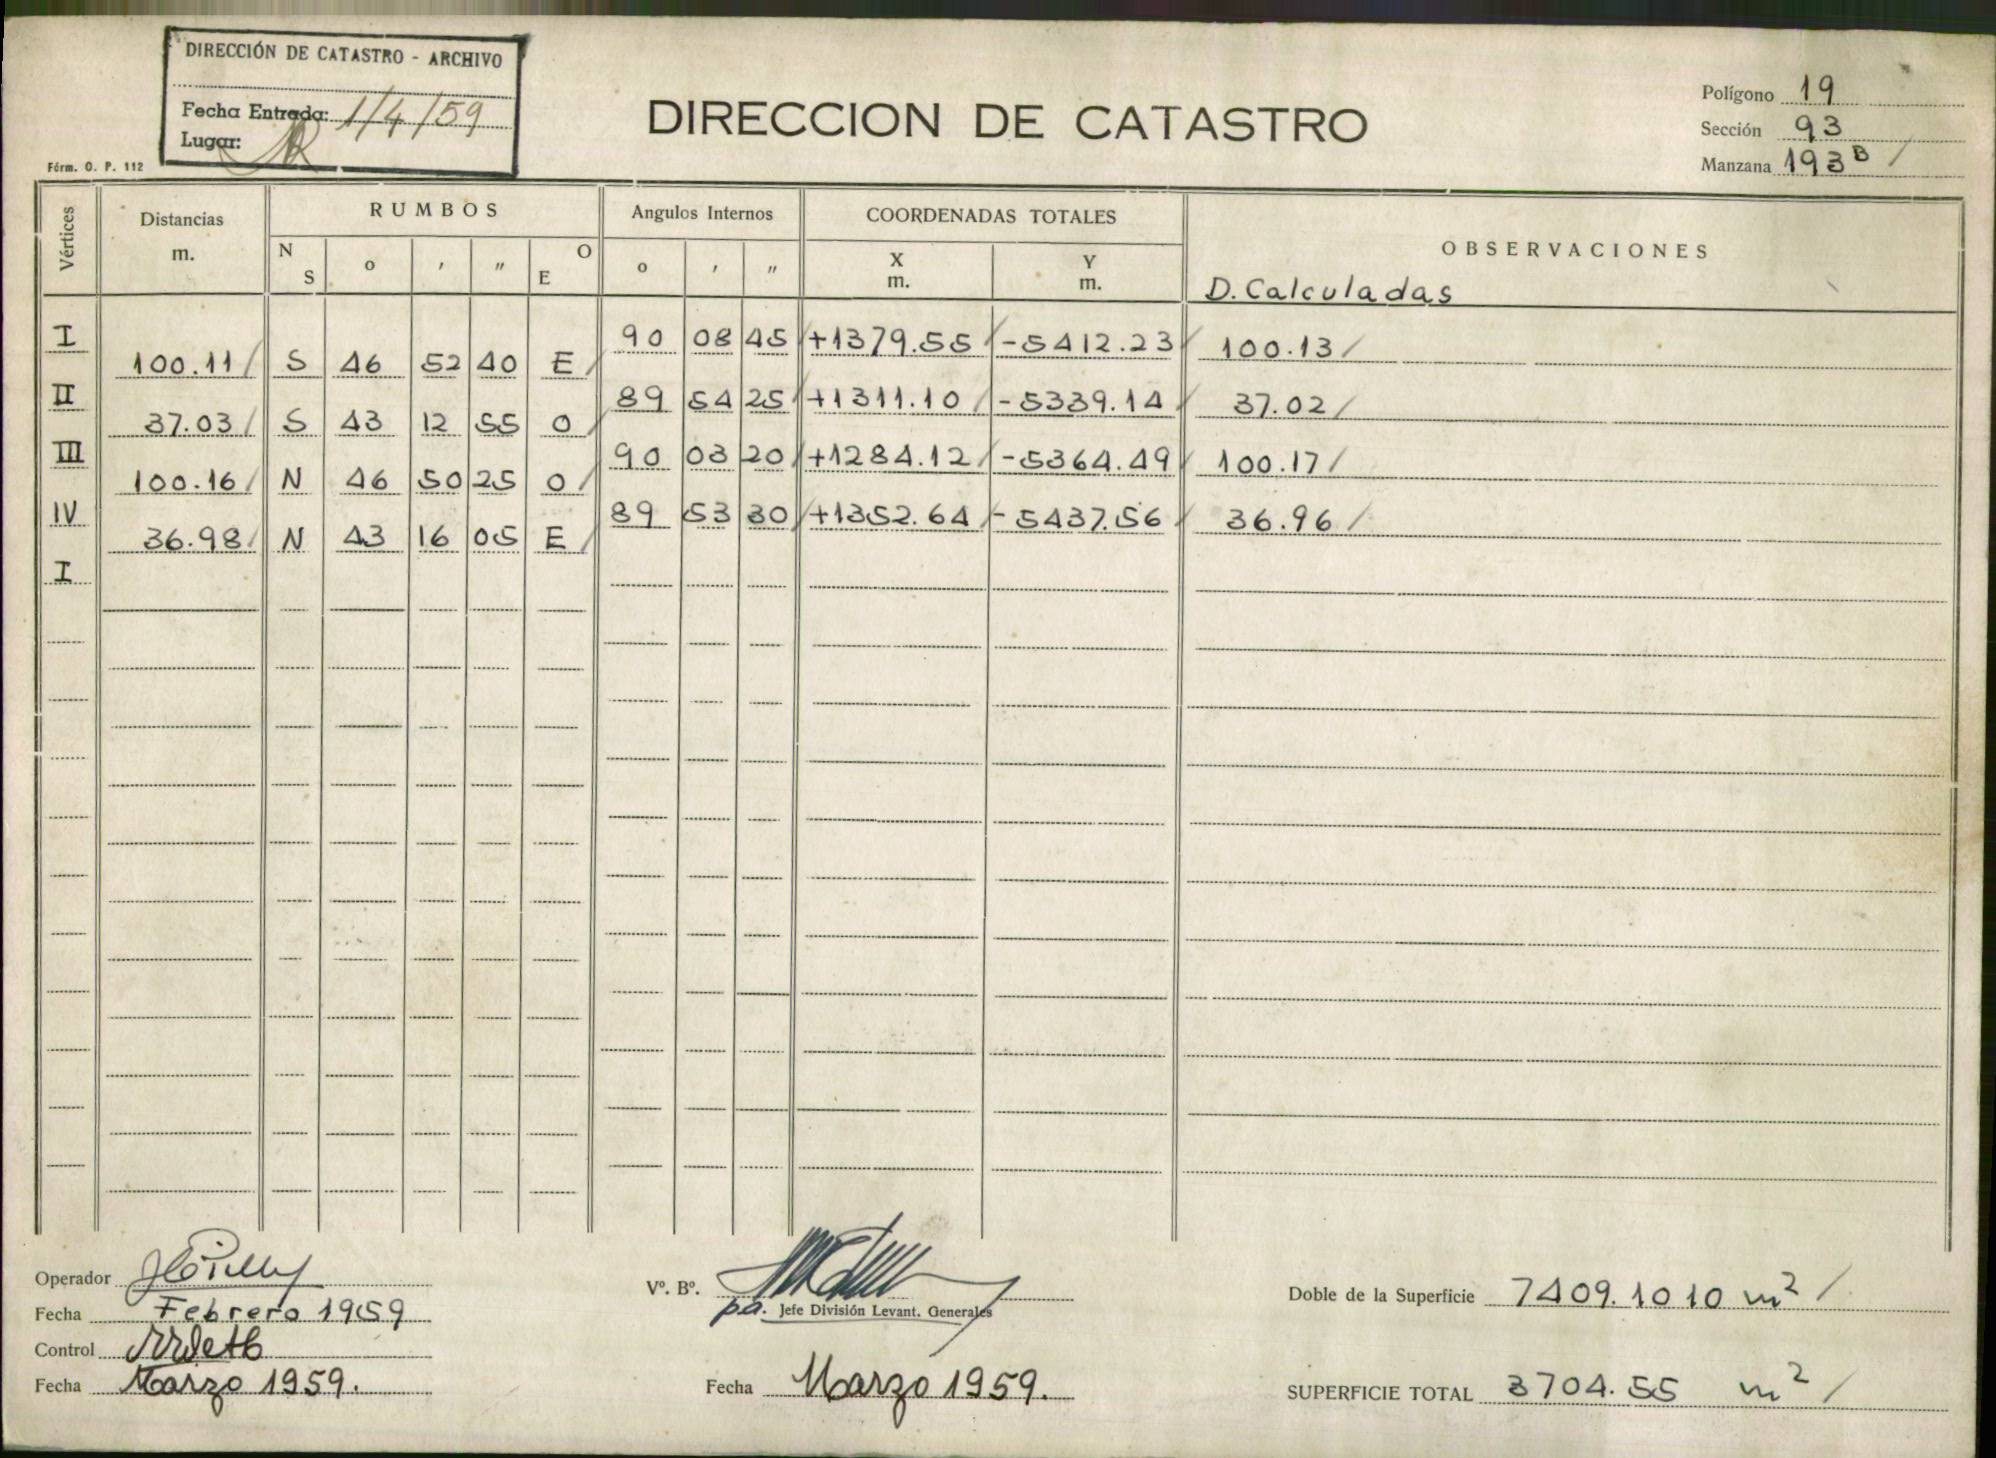 DIRECCIÓN DE CATASTRO - ARCHIVO
Fecha Entrada: 1/4/59
Lugar:
Fórm. O. P. 112
DIRECCION DE CATASTRO
Polígono 19
Sección 93
Manzana 193 B /
Vértices Distancias m. RUMBOS Angulos Internos COORDENADAS TOTALES OBSERVACIONES
N S o ' " O E o ' " X m. Y m. D. Calculadas
I 90 08 45 / +1379.55 / -5412.23 / 100.13 /
100.11 / S 46 52 40 E /
II 89 54 25 / +1311.10 / -5339.14 / 37.02 /
37.03 / S 43 12 55 O /
III 90 03 20 / +1284.12 / -5364.49 / 100.17 /
100.16 / N 46 50 25 O /
IV 89 53 30 / +1352.64 / -5437.56 / 36.96 /
36.98 / N 43 16 05 E /
I
Operador
Fecha Febrero 1959
Control
Fecha Marzo 1959.
Vº. Bº.
pa. Jefe División Levant. Generales
Fecha Marzo 1959.
Doble de la Superficie 7409.1010 m² /
SUPERFICIE TOTAL 3704.55 m² /